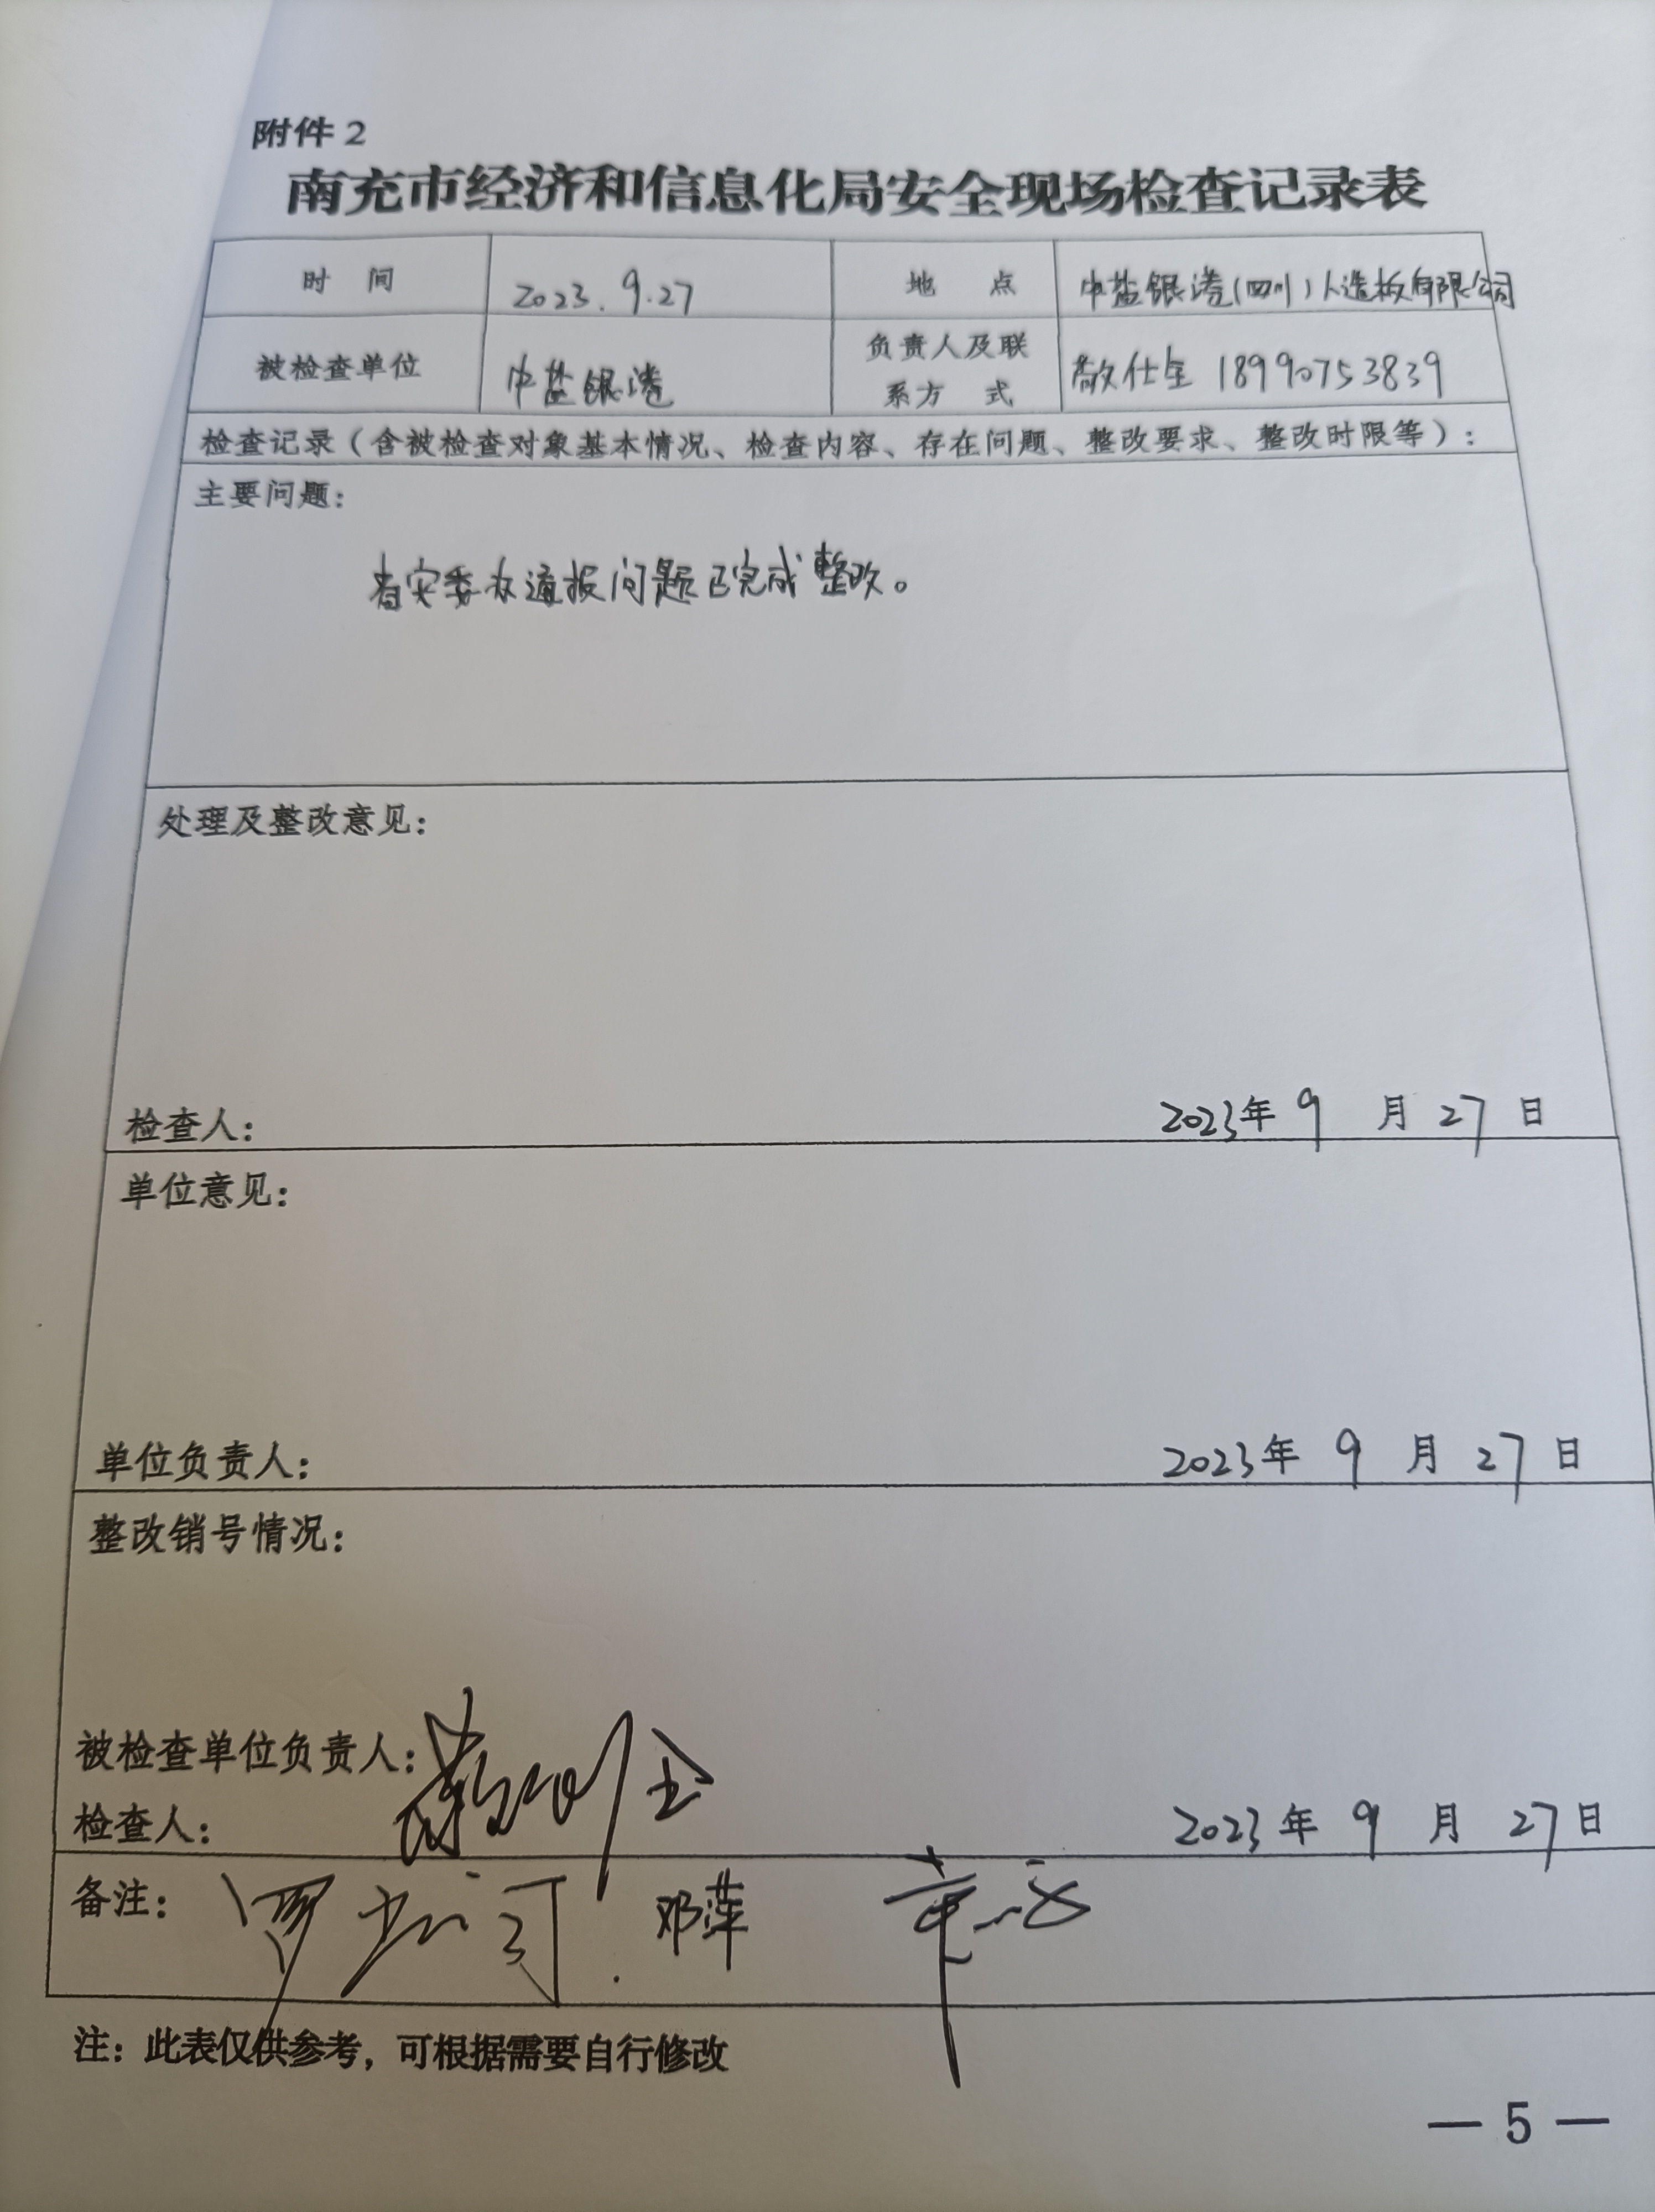 附件2
南充市经济和信息化局安全现场检查记录表
时 间 2023.9.27 地 点 中盐银港(四川)人造板有限公司
被检查单位 中盐银港 负责人及联系方 式 敬仕全 18990753839
检查记录（含被检查对象基本情况、检查内容、存在问题、整改要求、整改时限等）:
主要问题:
省安委办通报问题已完成整改。
处理及整改意见:
检查人: 2023年 9 月 27 日
单位意见:
单位负责人: 2023年 9 月 27 日
整改销号情况:
被检查单位负责人:
检查人: 2023 年 9 月 27 日
备注: 邓萍
注: 此表仅供参考, 可根据需要自行修改
— 5 —